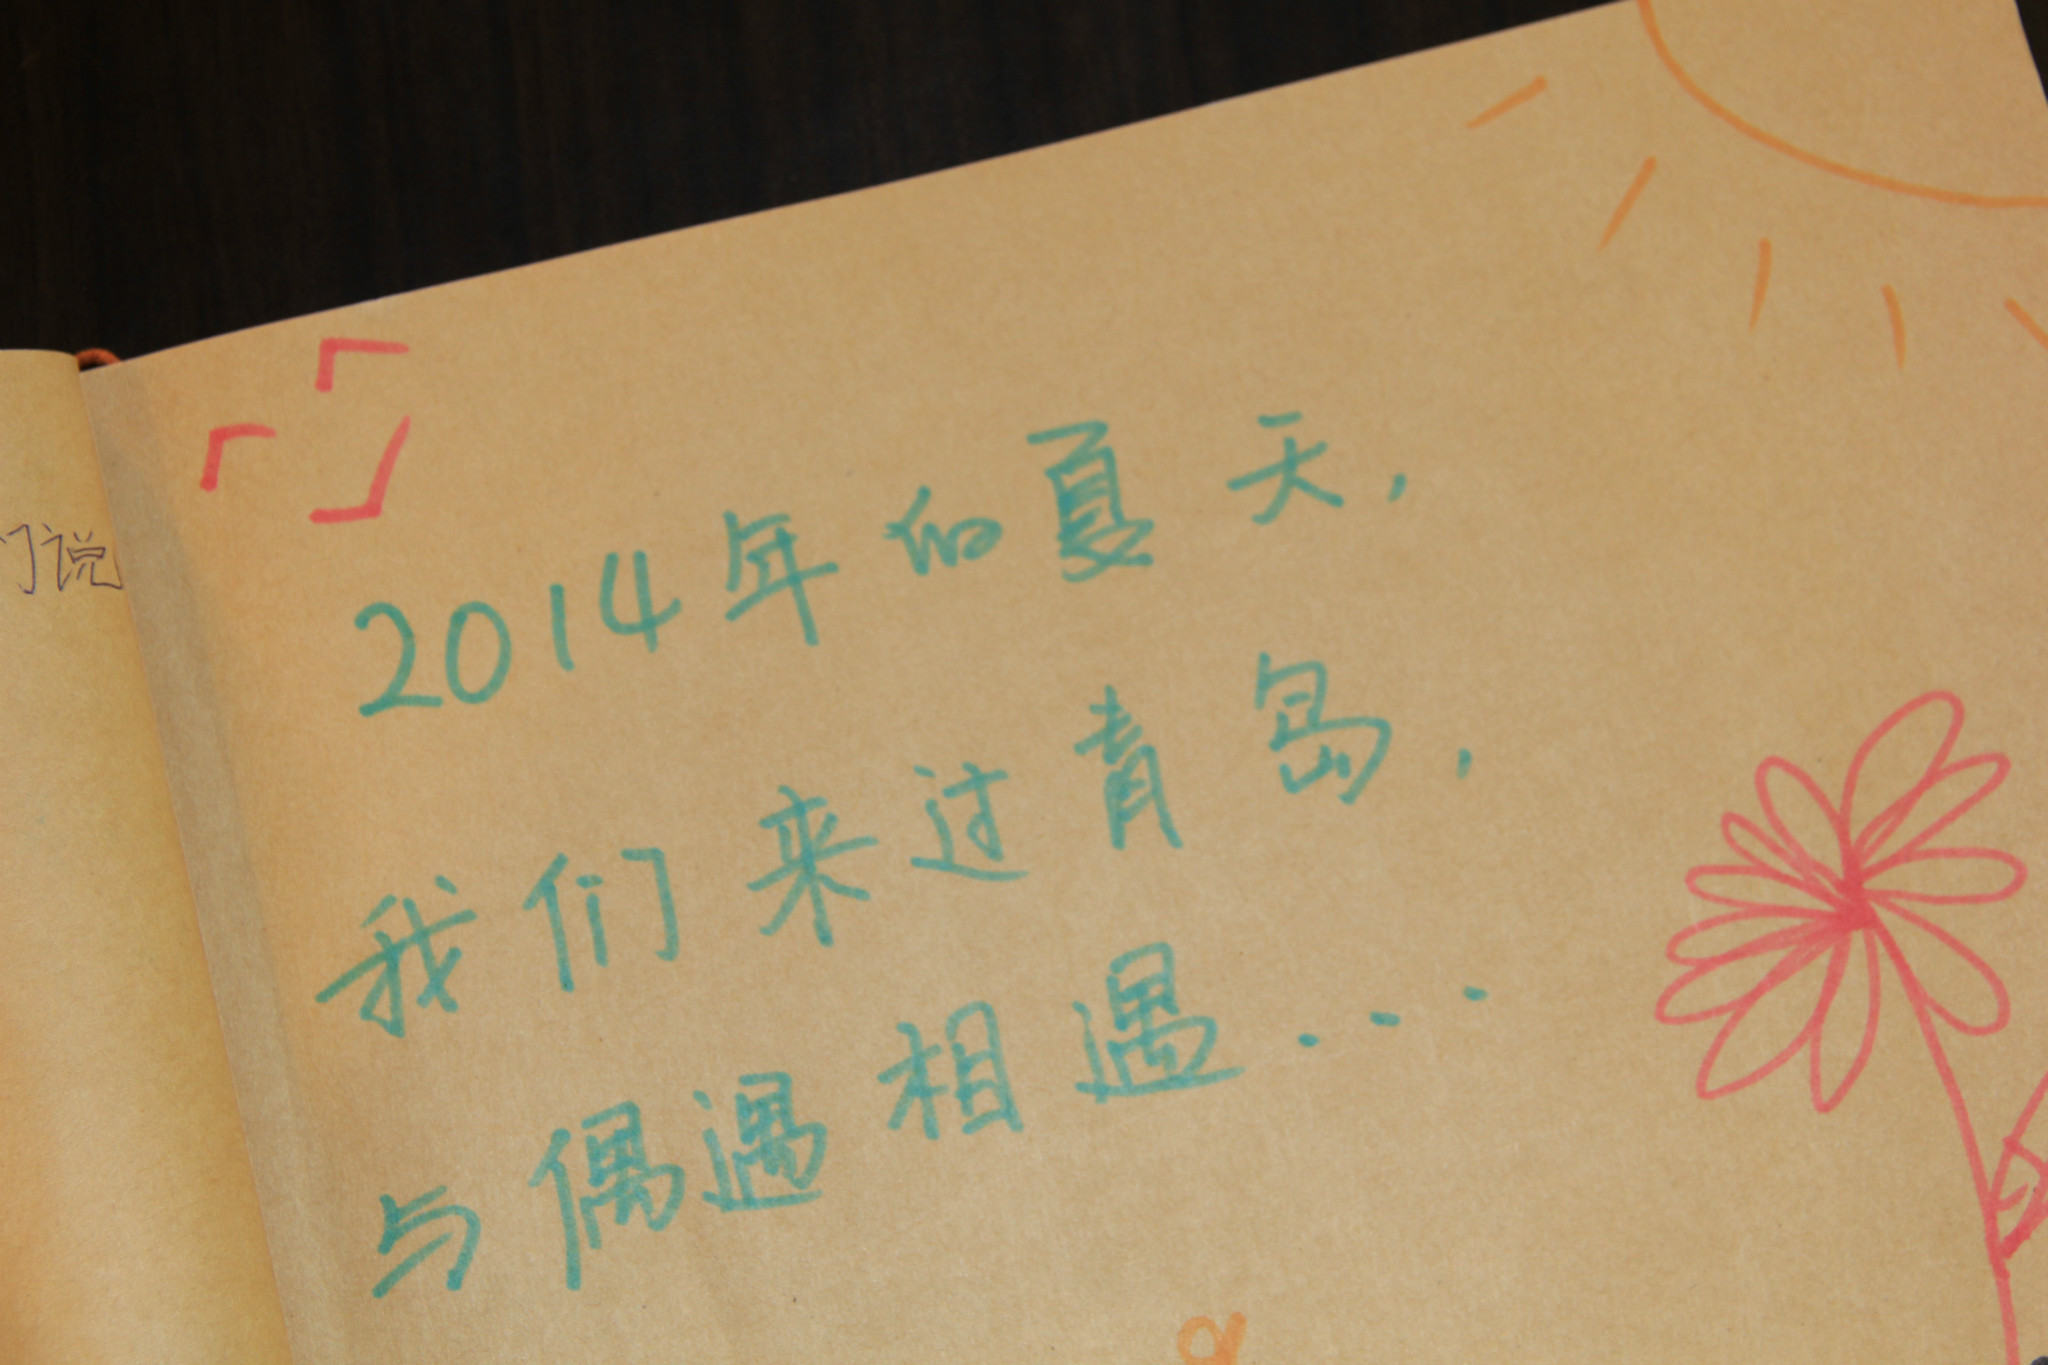 们说
2014年的夏天,
我们来过青岛,
与偶遇相遇...